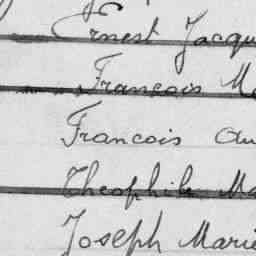 Ernest Jacqu
Francois Ma
Francois Au
Theophile Ma
Joseph Marie